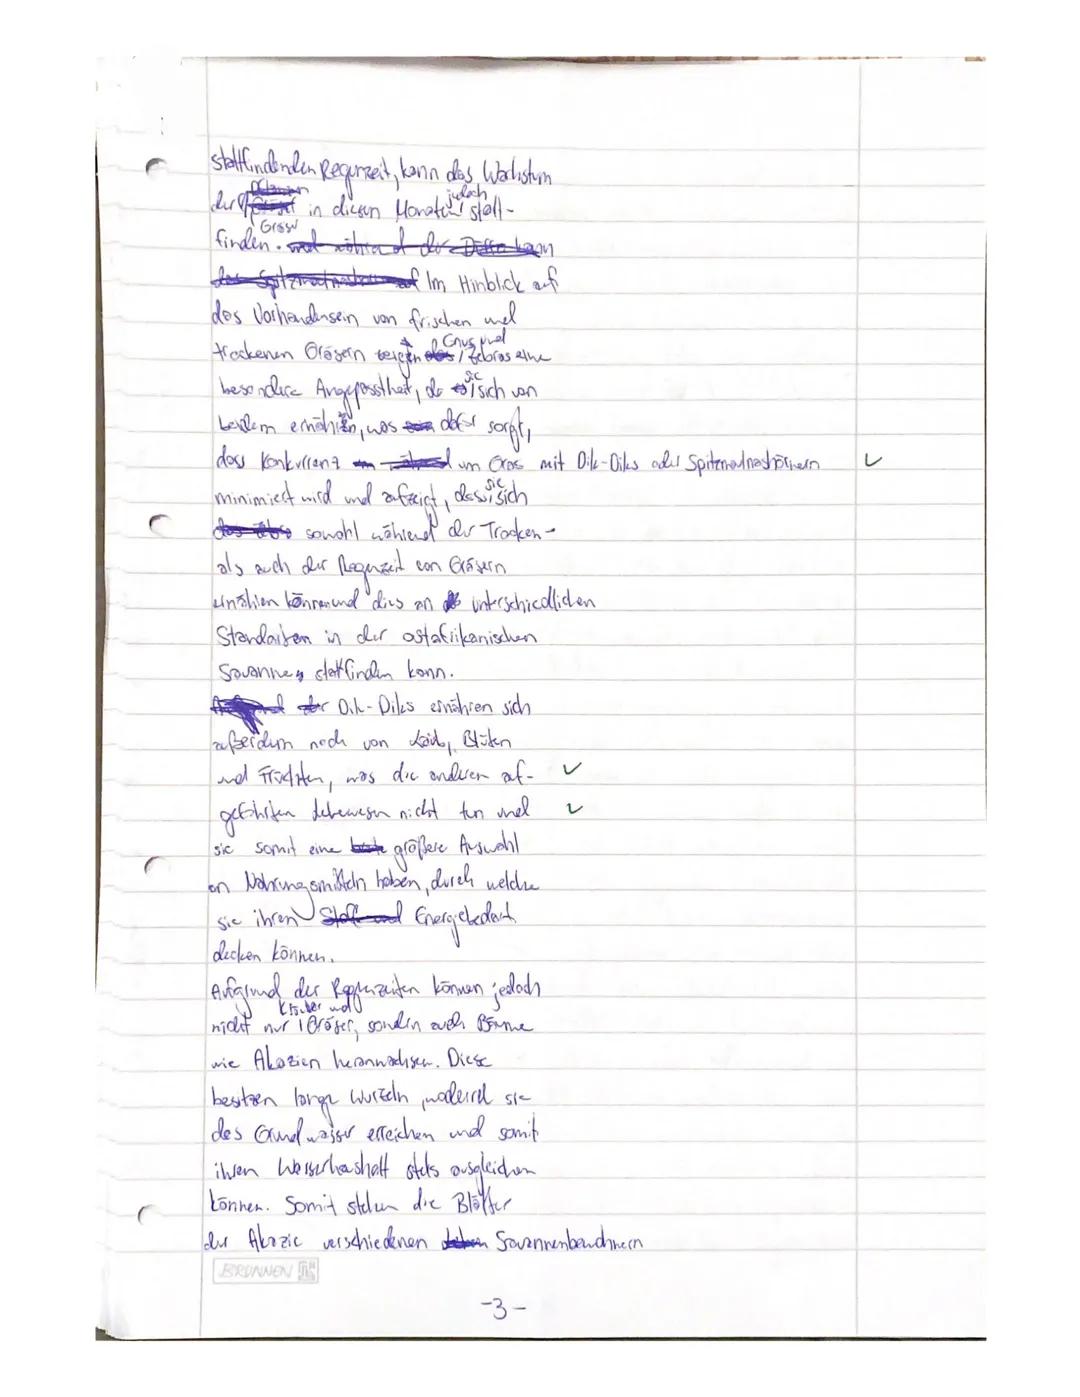 stattfindenden Regenzeit, kann das Wachstum
der Gräser in diesen Monaten jedoch statt-
finden. Im Hinblick auf
das Vorhandensein von frischen und
trockenen Gräsern zeigen Gnus und Zebras eine
besondere Angepasstheit, da sie sich von
beidem ernähren, was dafür sorgt,
dass Konkurrenz um Gras mit Dik-Diks oder Spitzmaulnashörnern
minimiert wird und aufzeigt, dass sie sich
sowohl während der Trocken-
als auch der Regenzeit von Gräsern
ernähren können und dies an unterschiedlichen
Standorten in der ostafrikanischen
Savanne stattfinden kann.
Dik-Diks ernähren sich
außerdem noch von Laub, Blüten
und Früchten, was die anderen auf-
geführten Lebewesen nicht tun und
sie somit eine größere Auswahl
an Nahrungsmitteln haben, durch welche
sie ihren Energiebedarf
decken können.
Aufgrund der Regenzeiten können jedoch
nicht nur Kräuter und Gräser, sondern auch Bäume
wie Akazien heranwachsen. Diese
besitzen lange Wurzeln, wodurch sie
das Grundwasser erreichen und somit
ihren Wasserhaushalt stets ausgleichen
können. Somit stehen die Blätter
der Akazie verschiedenen Savannenbewohnern
BRUNNEN
-3-